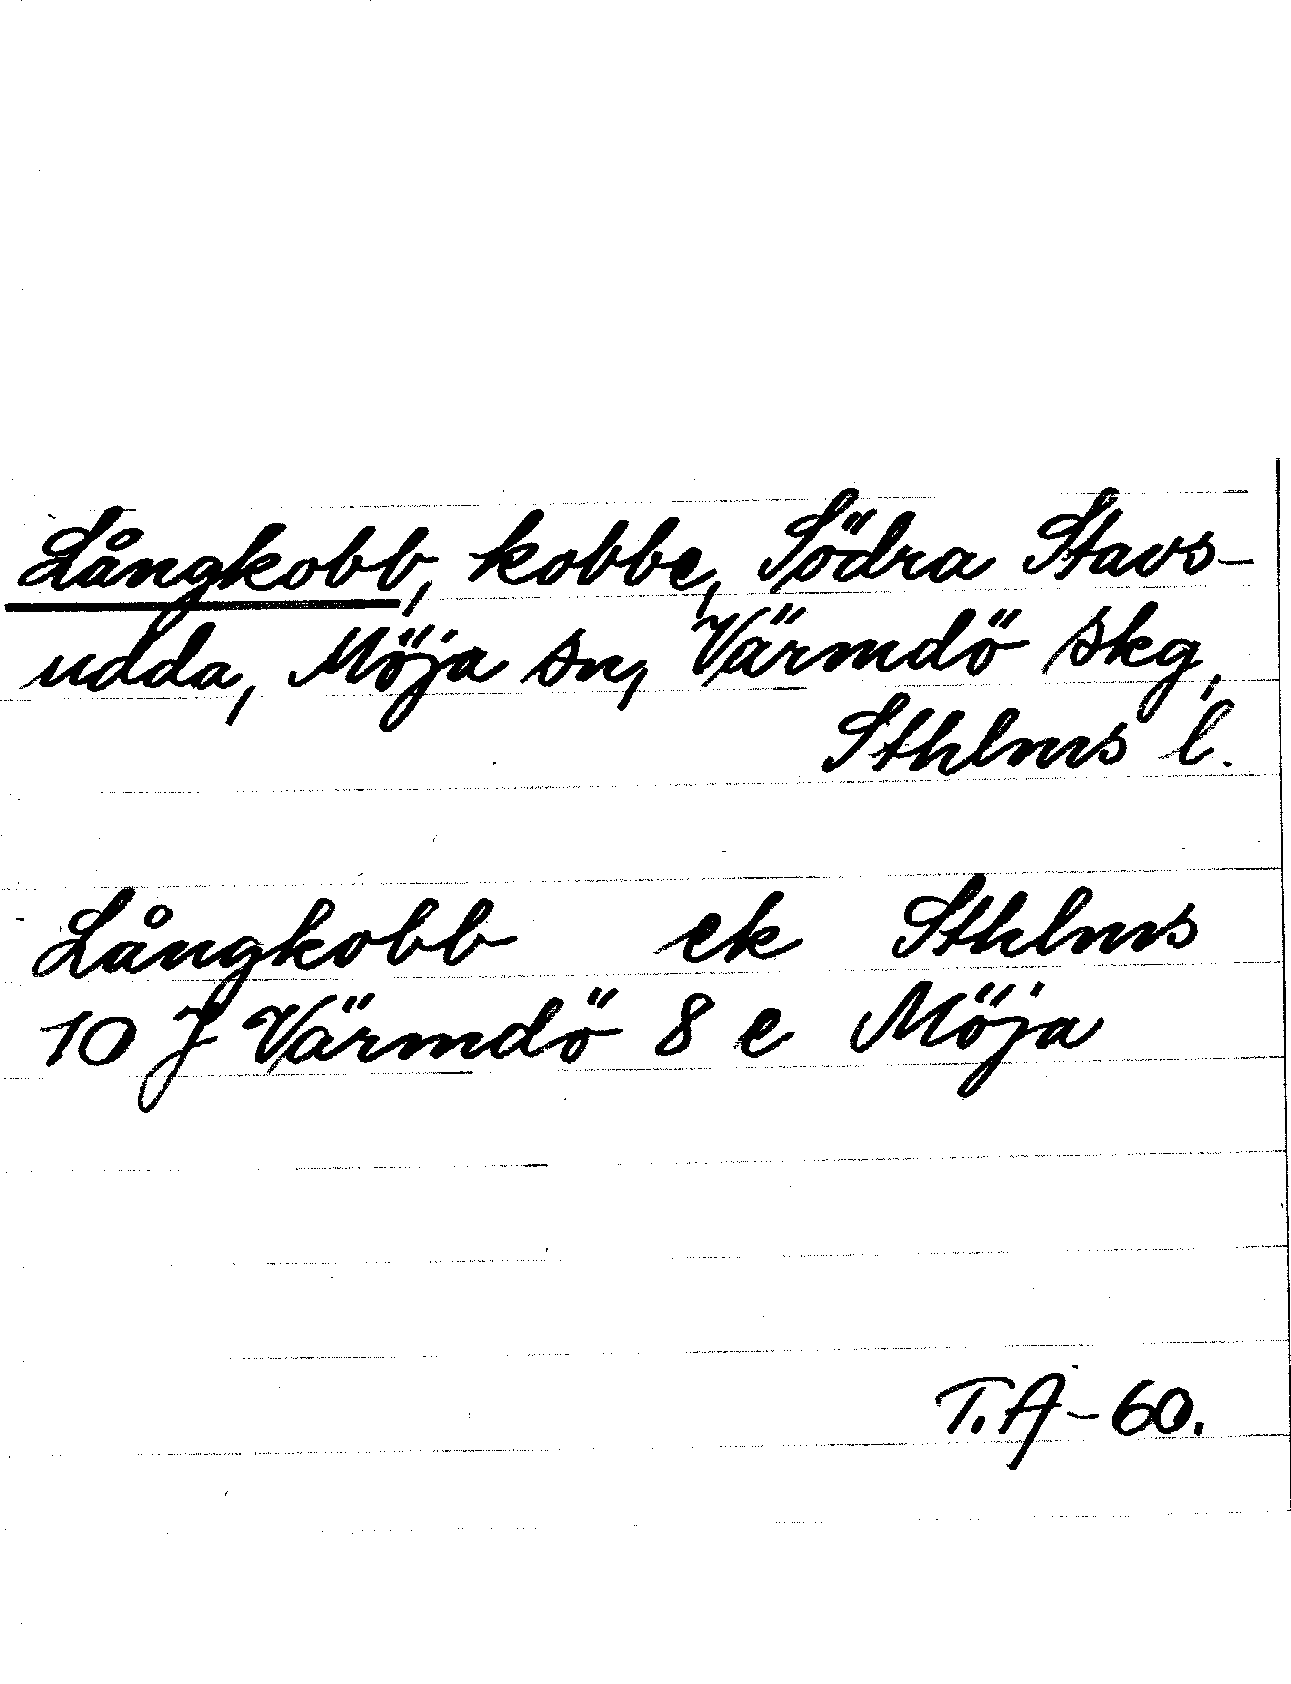 Långkobb, kobbe, Södra Stavs-
udda, Möja sn, Värmdö skg,
Sthlms l.
Långkobb ek Sthlms
10 J Värmdö 8 e Möja
T.A-60.